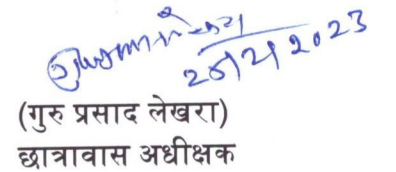 2023
(गुरु प्रसाद लेखरा)
छात्रावास अधीक्षक